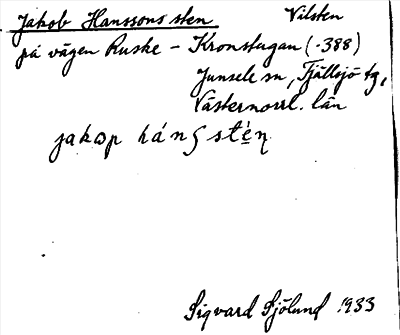 Jakob Hanssons sten Vilsten
på vägen Ruske - Kronstugan (-388)
Junsele sn, Fjällsjö tg,
Västernorrl. län
jakɷp háns̩ stèn
Sigvard Sjölund 1933